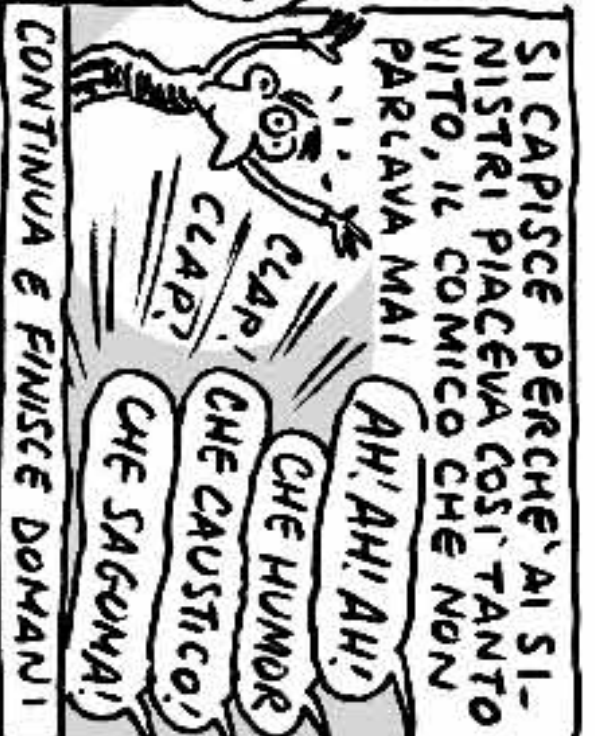 SI CAPISCE PERCHE' AI SI-
NISTRI PIACEVA COSI' TANTO
VITO, IL COMICO CHE NON
PARLAVA MAI
AH! AH! AH!
CHE HUMOR
CHE CAUSTICO!
CHE SAGOMA!
CLAP!
CLAP!
CONTINUA E FINISCE DOMANI